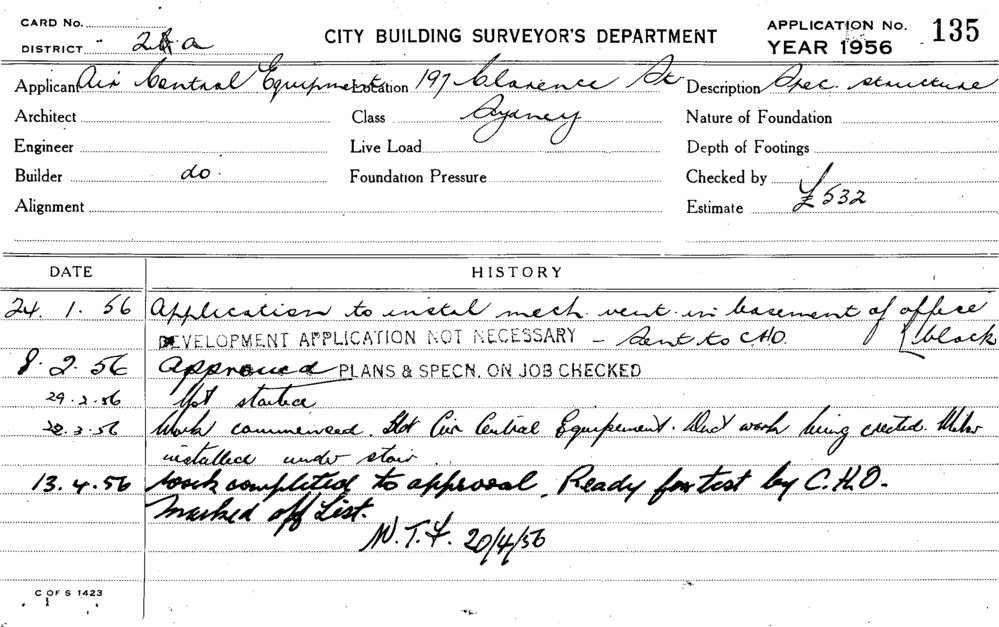 CARD No.
DISTRICT 2 a
CITY BUILDING SURVEYOR'S DEPARTMENT
APPLICATION No. 135
YEAR 1956
Applicant Air Central Equipment Location 197 Clarence St Description Spec. structure
Architect Class Sydney Nature of Foundation
Engineer Live Load Depth of Footings
Builder do. Foundation Pressure Checked by
Alignment Estimate £532
DATE HISTORY
24. 1. 56 Application to instal mech. vent. in basement of office block
DEVELOPMENT APPLICATION NOT NECESSARY - Sent to CHO.
8. 2. 56 Approved PLANS & SPECN. ON JOB CHECKED
29.2.56 Not started
28.3.56 Work commenced. Air Central Equipement. Duct work being erected.
installed under stair
13.4.56 Work completed to approval. Ready for test by C.H.O.
Marked off List.
20/4/56
C OF S 1423